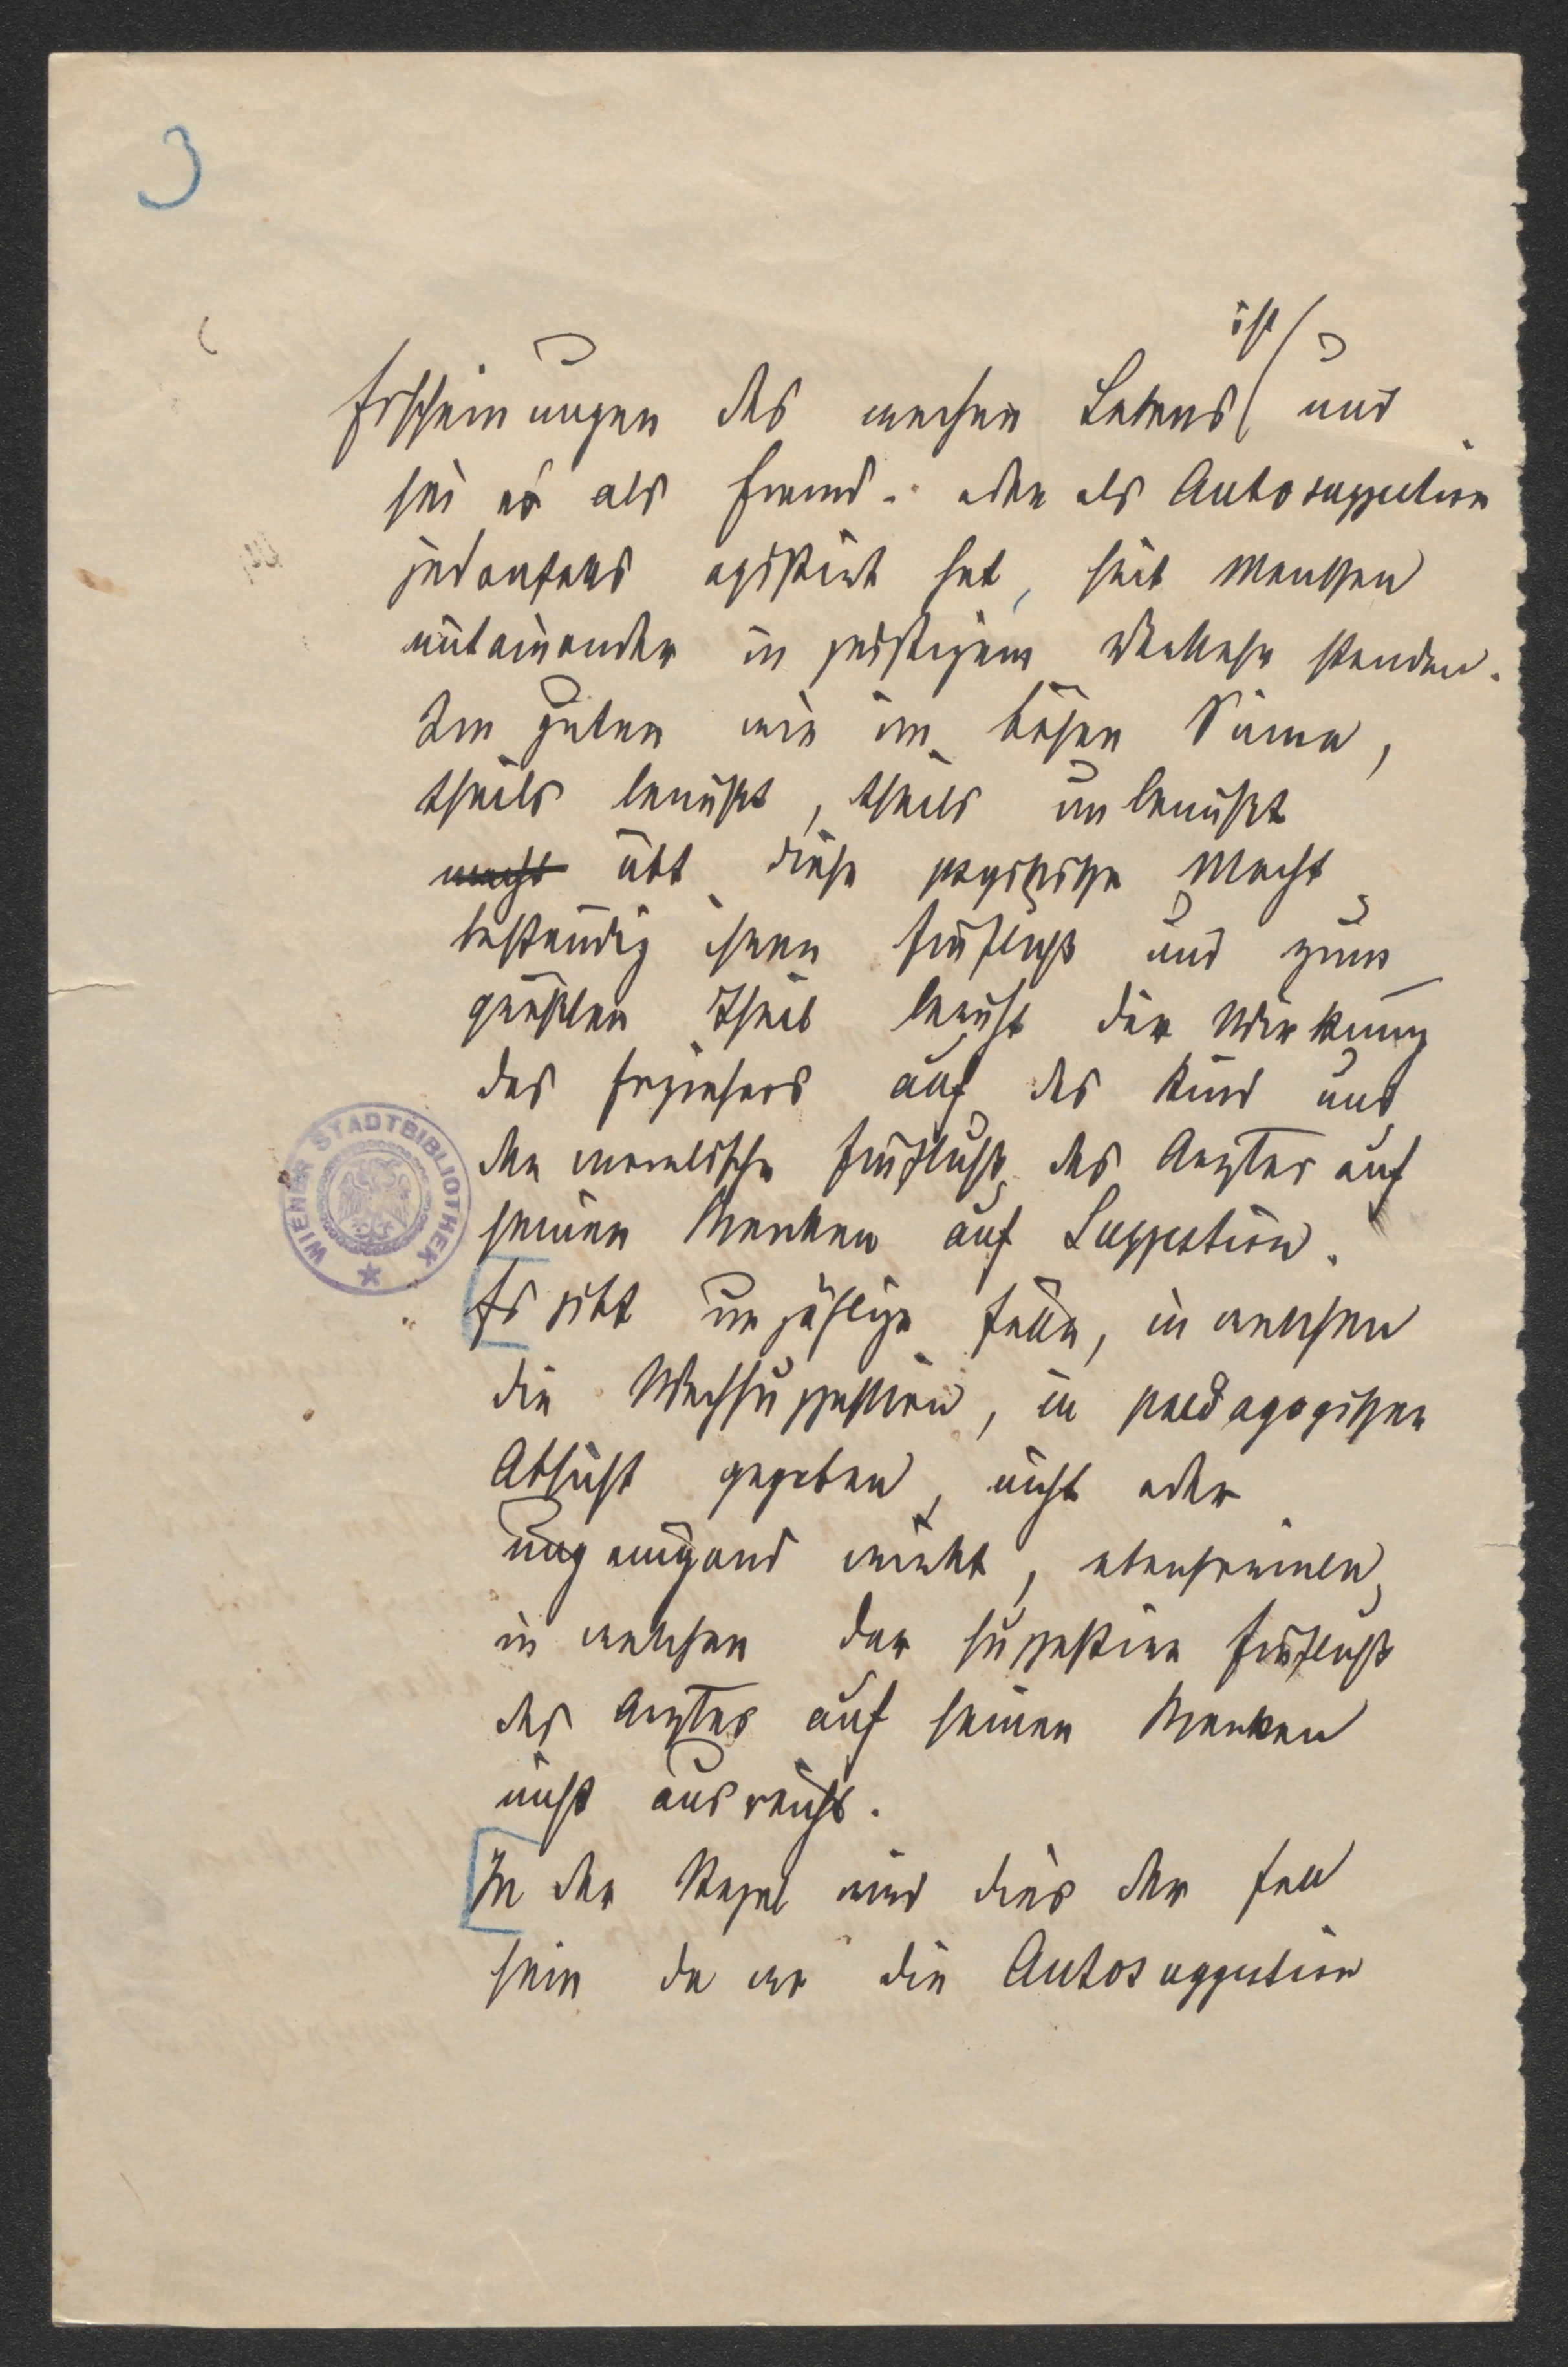 3
ist
Erscheinungen des wachen Lebens und
sei es als Fremd- oder als Autosuggestion
jedenfalls existirt hat, seit Menschen
miteinander in geistigem Verkehr standen.
Im guten wie im bösen Sinne,
theils bewußt, theils unbewußt
macht übt diese psychische Macht
beständig ihren Einfluß und zum
größten Theil beruht die Wirkung
des Erziehers auf das Kind und
der moralische Einfluß des Arztes auf
seinen Kranken auf Suggestion.
Es gibt unzählige Fälle, in welchen
die Wachsuggestion, in paedagogischer
Absicht gegeben, nicht oder
ungenügend wirkt, ebensowie
in welchen der suggestive Einfluß
des Arztes auf seinen Kranken
nicht ausreicht.
In der Regel wird dies der Fall
sein da wo die Autosuggestion
WIENER STADTBIBLIOTHEK